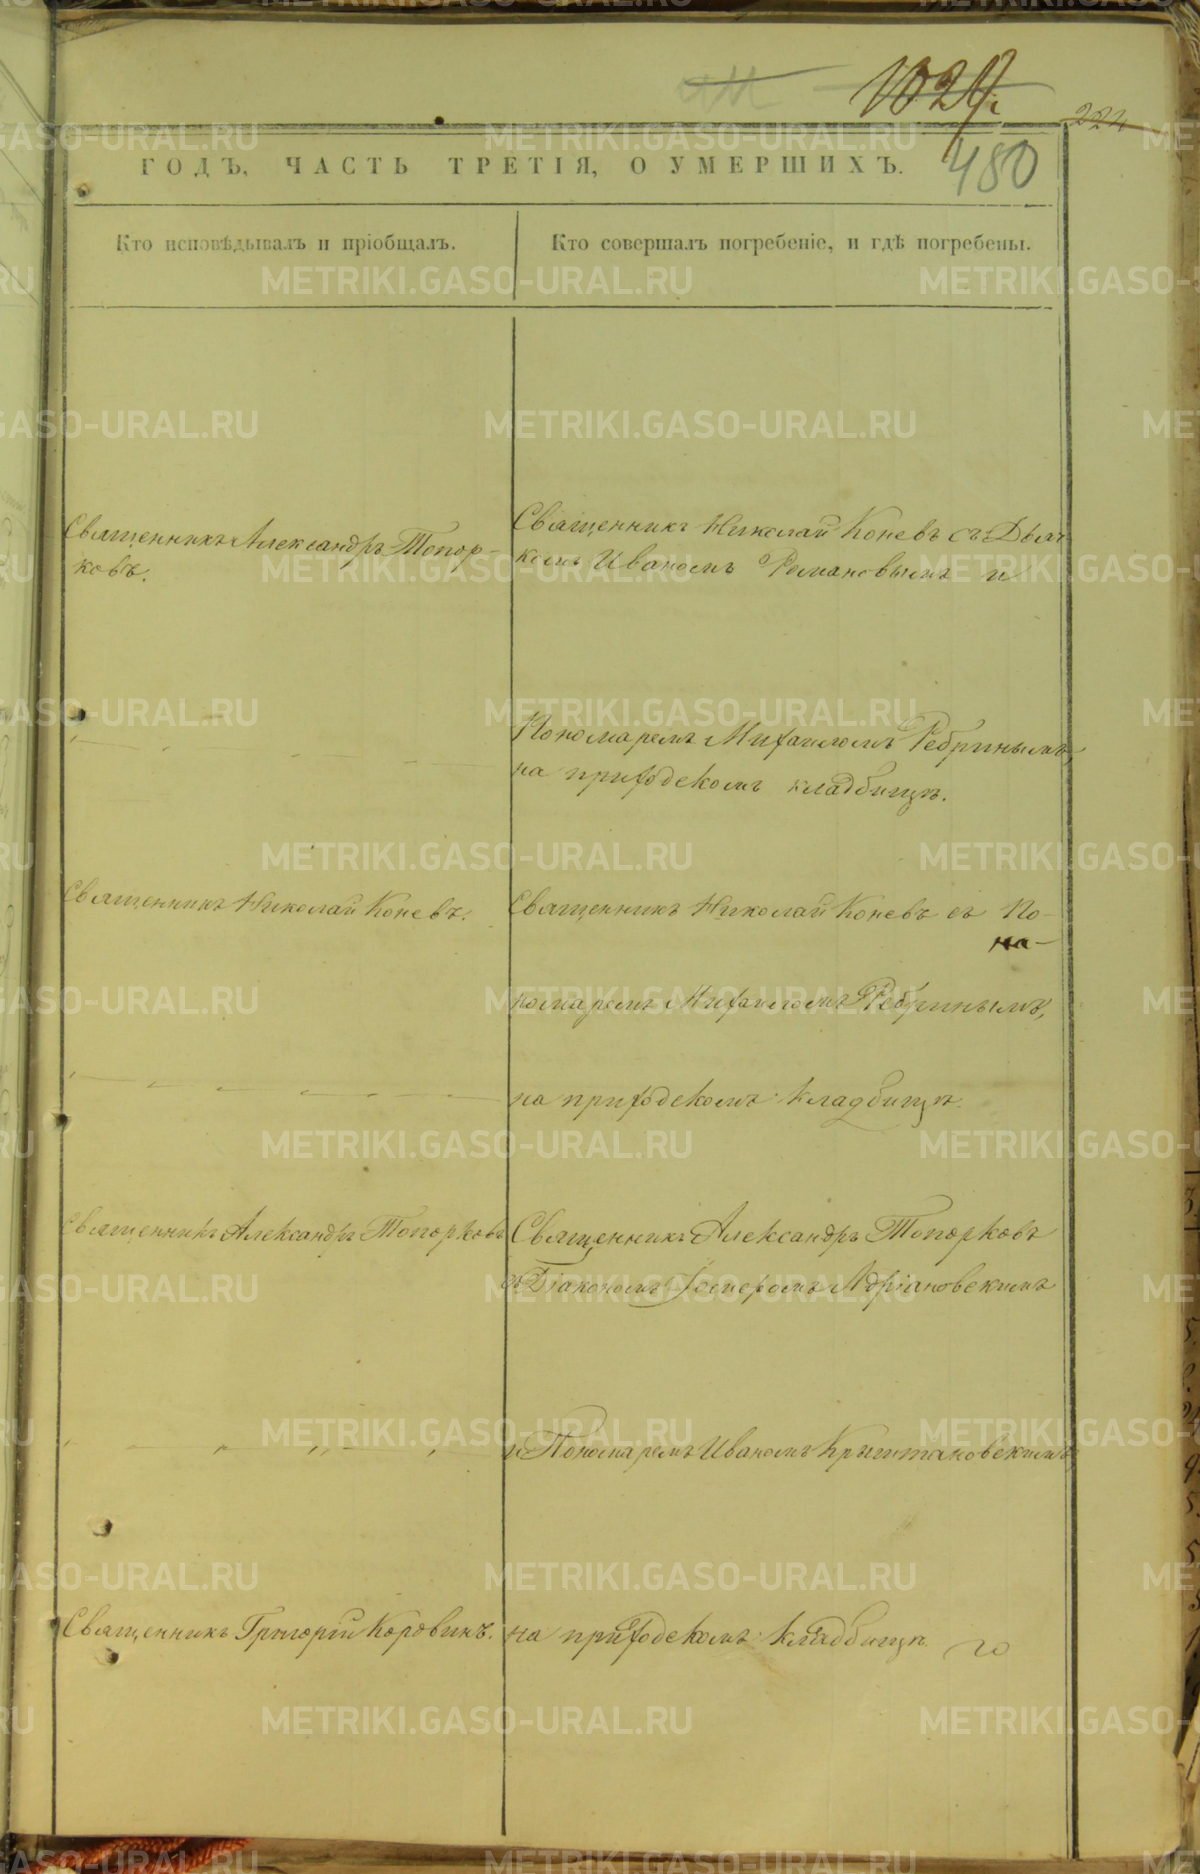 1029
224
480
ГОДЪ, ЧАСТЬ ТРЕТІЯ, О УМЕРШИХЪ.
Кто исповѣдывалъ и пріобщалъ.
Кто совершалъ погребеніе, и гдѣ погребены.
Священникъ Александръ Топор-
ковъ.
Священникъ Николай Коневъ съ Дьяч
комъ Иваномъ Романовымъ и
Пономаремъ Михаиломъ Ребринымъ,
на приходскомъ кладбищѣ.
Священникъ Николай Коневъ.
Священникъ Николай Коневъ съ По-
на-
номаремъ Михаиломъ Ребринымъ,
на приходскомъ кладбищѣ.
Священникъ Александръ Топорковъ
Священникъ Александръ Топорковъ
съ Діакономъ Адріановскимъ
и Пономаремъ Иваномъ Крыштановскимъ
Священникъ Григорій Коровинъ.
на приходскомъ кладбищѣ
METRIKI.GASO-URAL.RU